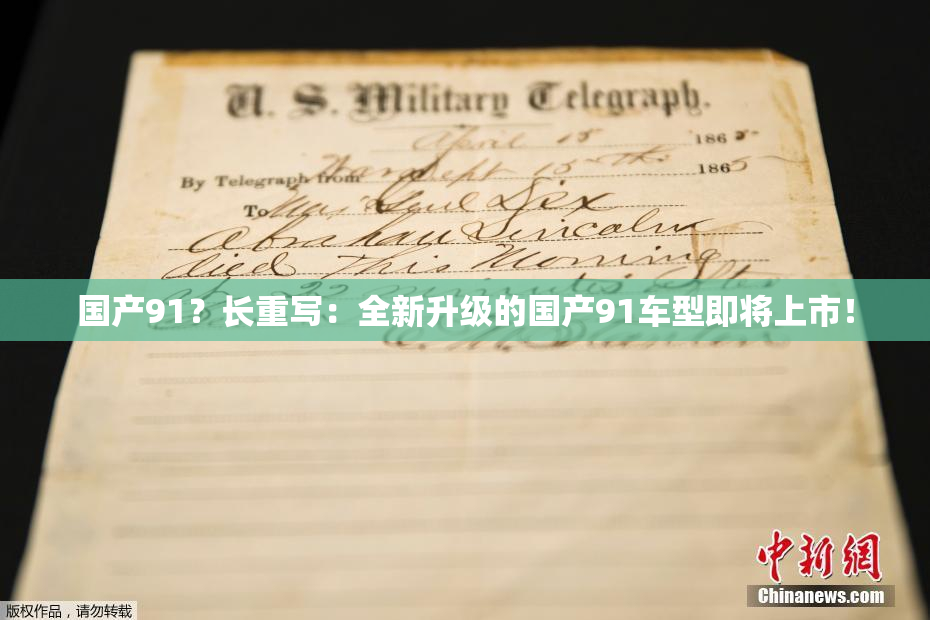 U. S. Military Telegraph.
April 15 1865
By Telegraph from War Dept 15th 1865
To Maj Genl Dix
Abraham Lincoln
died This Morning
at 22 minutes after
国产91？长重写：全新升级的国产91车型即将上市！
E. M. Stanton
中新网
Chinanews.com
版权作品，请勿转载